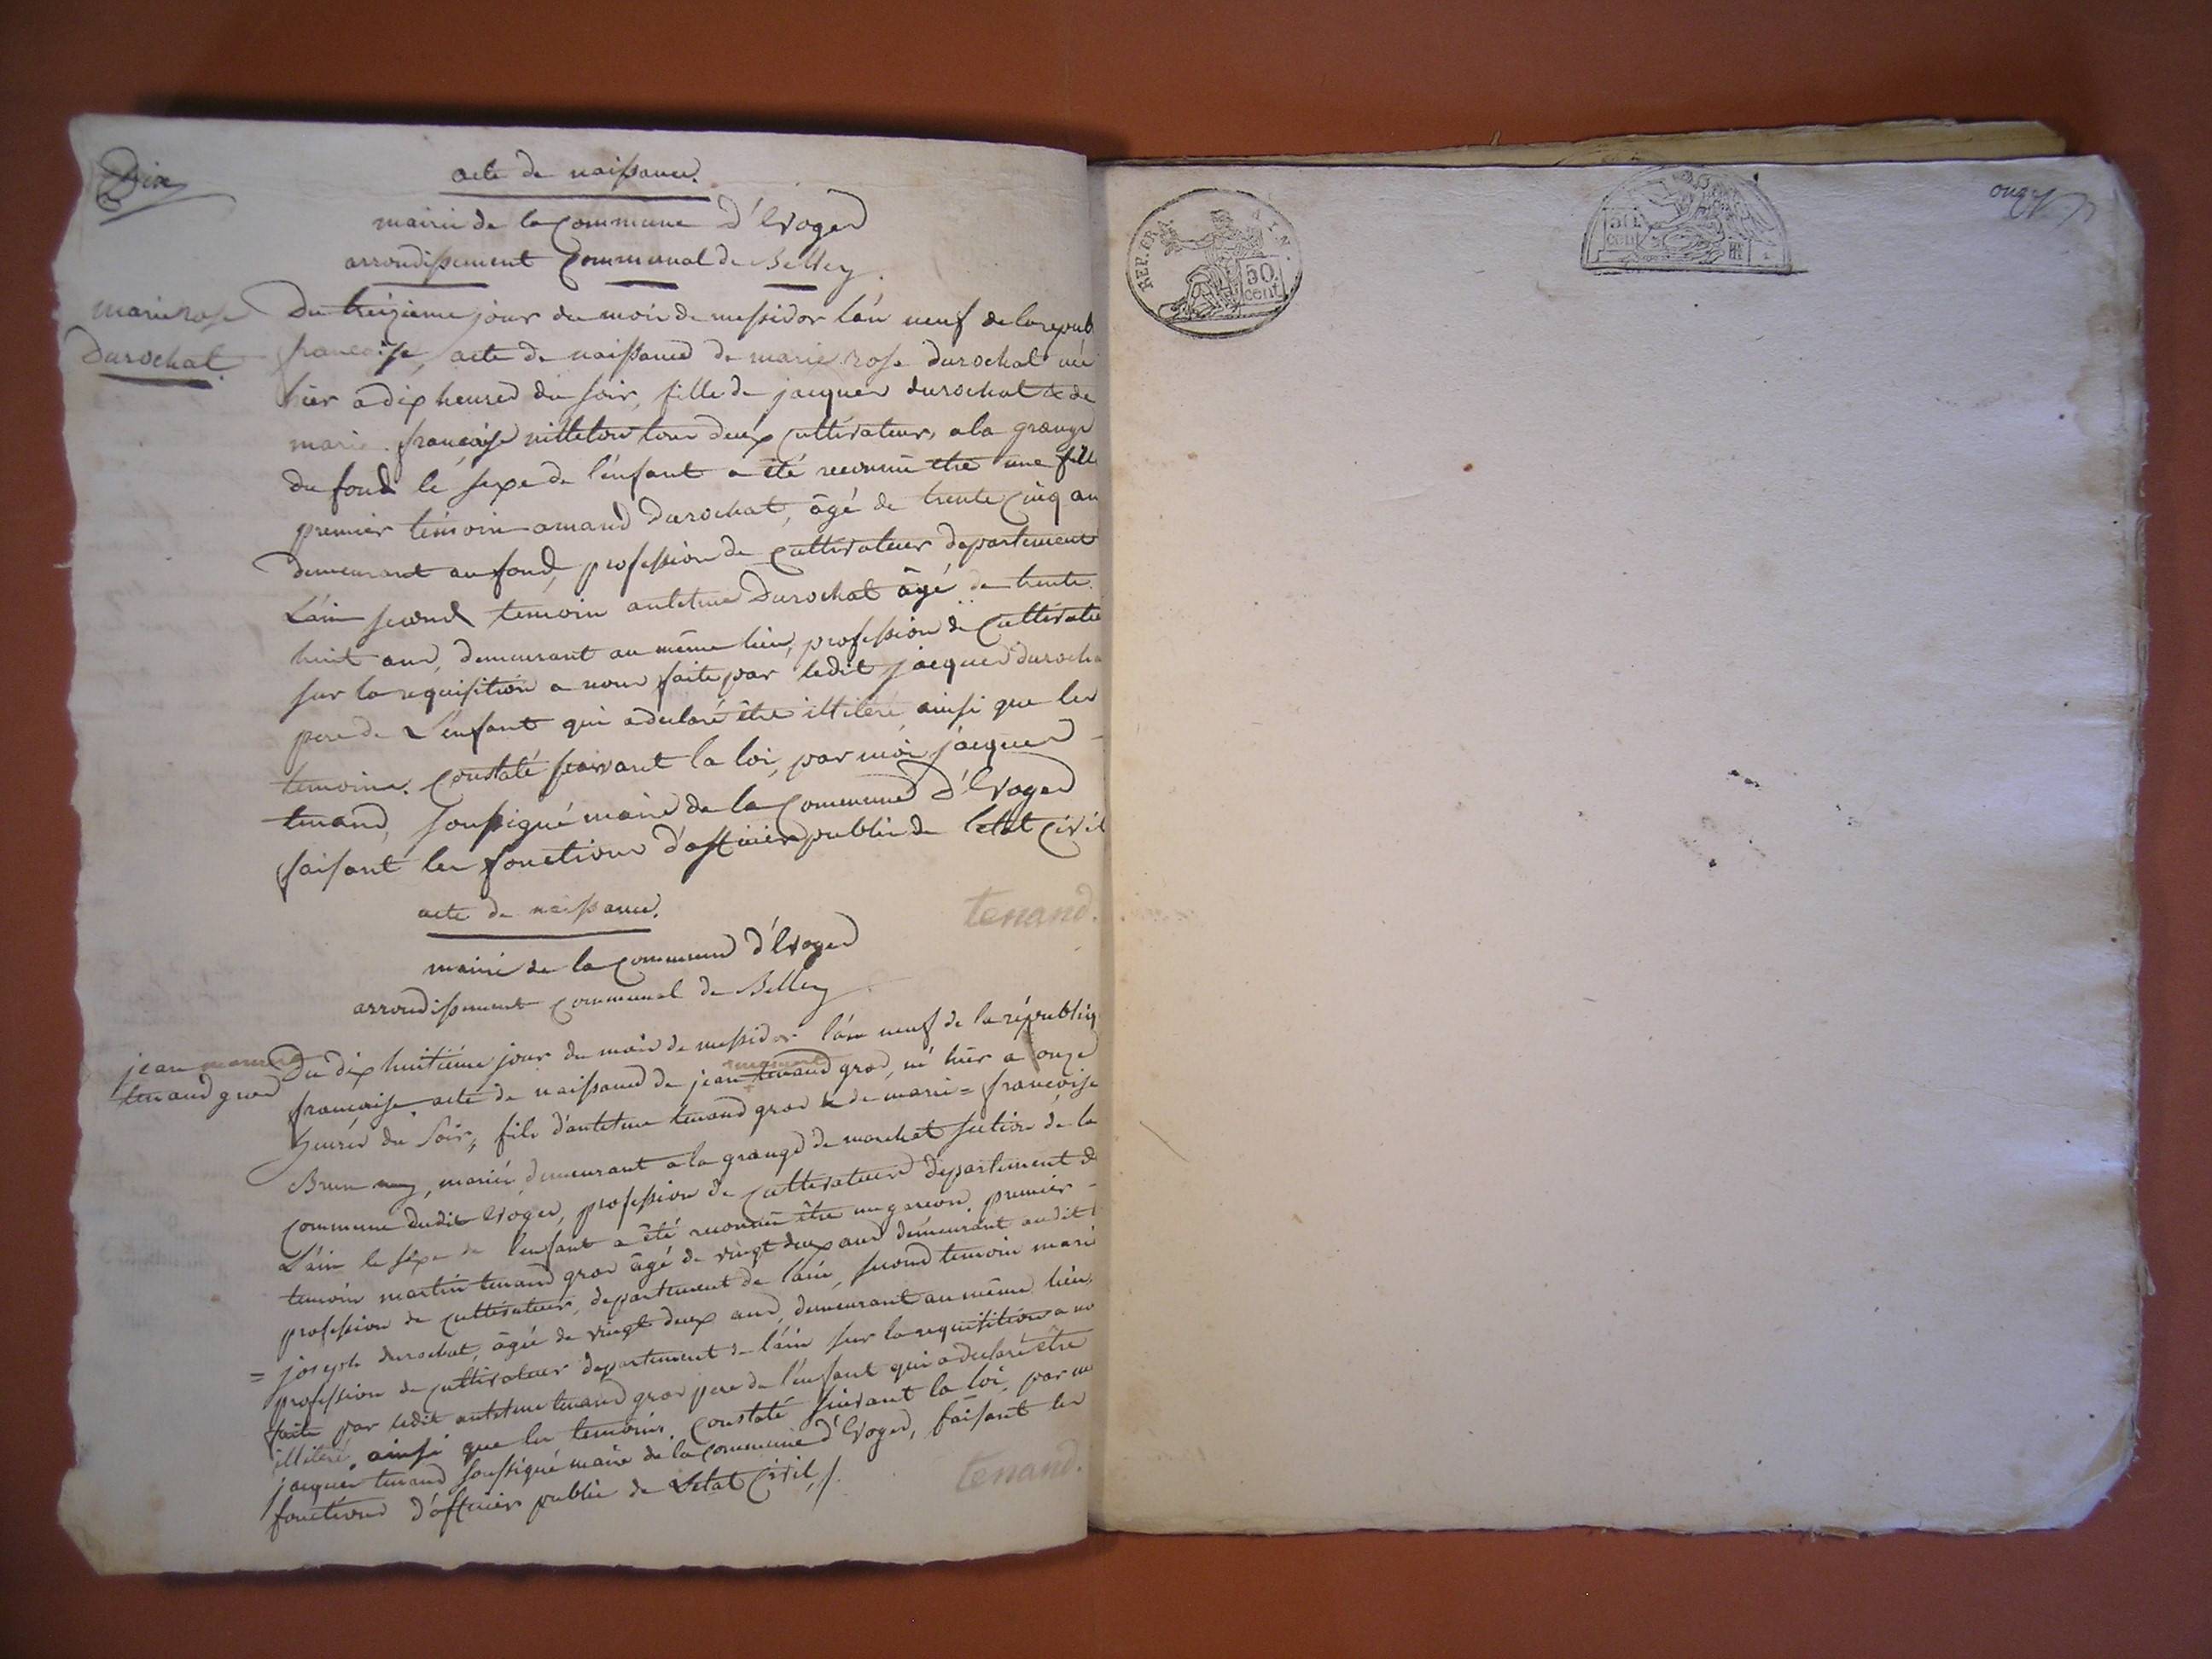 Dix
acte de naissance.
mairie de la Commune d'Evoges
arrondissement Communal de Belley.
marie rose
Durochat.
Du treizieme jour du mois de messidor l'an neuf de la repub
francaise, acte de naissance de marie rose durochat née
hier a dix heures du soir, fille de jacques durochat & de
marie françoise tous deux cultivateurs, a la grange
du fond le sexe de l'enfant a été reconnu etre une fille
premier témoin amand Durochat, âgé de trente cinq an
demeurant au fond, profession de cultivateur departement
L'ain second temoin antelme Durochat âgé de trente
huit ans, demeurant au même lieu, profession de Cultivate
sur la requisition a nous faite par ledit jacques durocha
pere de L'enfant qui a declaré être illiteré ainsi que les
temoins. Constaté suivant la loi, par moi jacques
tenand, soussigné maire de la Commune d'Evoges
faisant les fonctions d'officier public de l'etat Civil
tenand.
acte de naissance.
mairie de la Commune d'Evoges
arrondissement Communal de Belley
jean
tenand gros
Du dix huitiéme jour du mois de messidor l'an neuf de la républiq
francaise. acte de naissance de jean tenand gros, né hier a onze
heures du Soir, fils d'antelme tenand gros & de marie = francoise
Brun, mariés, demeurant a la grange de marchat section de la
Commune dudit Evoges, profession de Cultivateurs departement de
L'ain le sexe de l'enfant a été reconnu être un garcon. premier
temoin martin tenand gros âgé de vingt deux ans demeurant audit
profession de cultivateur, departement de l'ain, second temoin marie
= joseph durochat, âgée de vingt deux ans, demeurant au même lieu,
profession de cultivateur departement de l'ain sur la requisition a no
faite par ledit antelme tenand gros pere de l'enfant qui a declaré être
illiteré, ainsi que les temoins. Constaté suivant la loi, par m
jacques tenand soussigné maire de la Commune d'Evoges, faisant les
fonctions d'officier public de L'etat Civil,/.
tenand.
REP. FRA.
AIN.
50
cent.
50
cent
onze